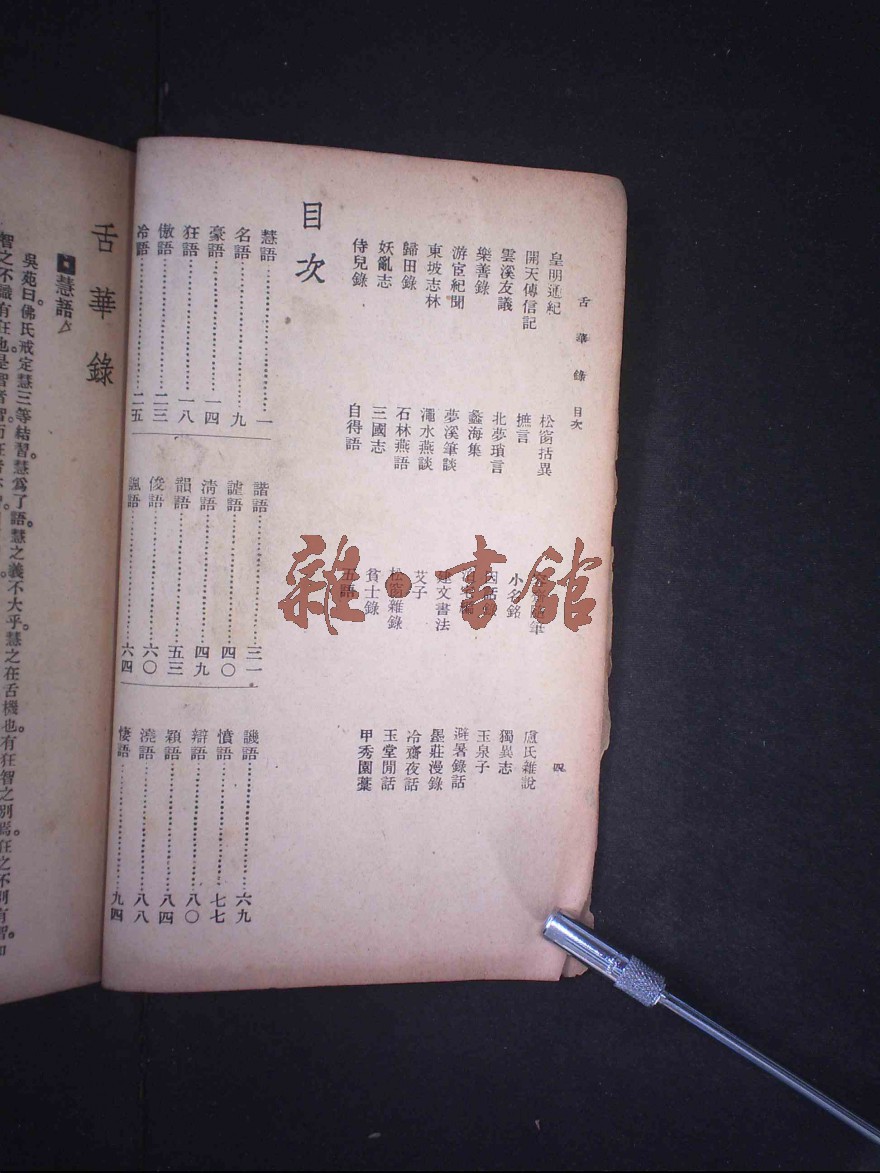 舌華錄 目次
四
皇明通紀
松窗括異
盧氏雜說
開天傳信記
摭言
小名銘
獨異志
雲溪友議
北夢瑣言
玉泉子
樂善錄
蠡海集
避暑錄話
游宦紀聞
夢溪筆談
建文書法
墨莊漫錄
東坡志林
澠水燕談
艾子
冷齋夜話
歸田錄
石林燕語
松窗雜錄
玉堂閒話
妖亂志
三國志
貧士錄
甲秀園藁
侍兒錄
自得語
五語
目次
慧語⋯⋯一
名語⋯⋯九
豪語⋯⋯一四
狂語⋯⋯一八
傲語⋯⋯二三
冷語⋯⋯二五
諧語⋯⋯三一
謔語⋯⋯四〇
清語⋯⋯四九
韻語⋯⋯五三
俊語⋯⋯六〇
諷語⋯⋯六四
譏語⋯⋯六九
憤語⋯⋯七七
辯語⋯⋯八〇
穎語⋯⋯八四
澆語⋯⋯八八
悽語⋯⋯九四
舌華錄
慧語
吳苑曰。佛氏戒定慧三等結習。慧爲了語。慧之義不大乎。慧之在舌機也。有狂智之別焉。
雜·書館